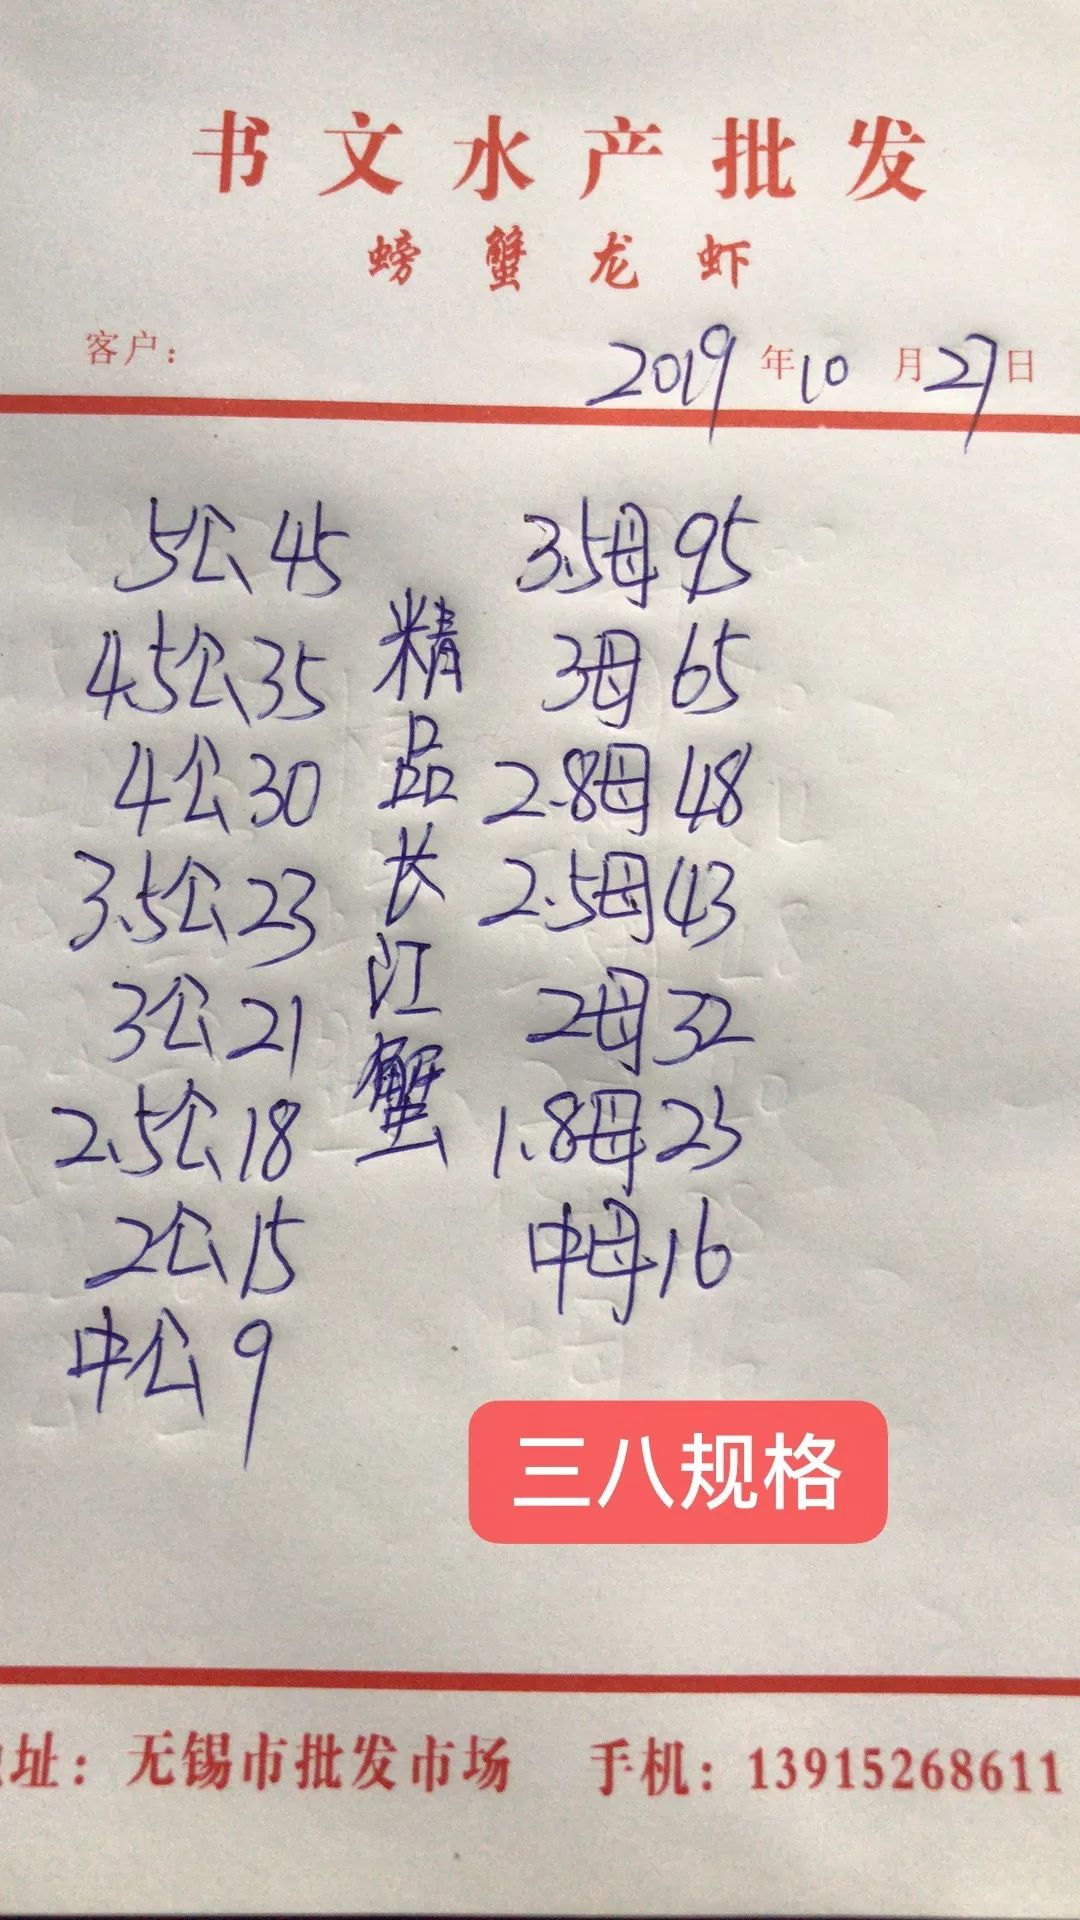 书文水产批发
螃蟹龙虾
客户：
2019年10月27日
5公45
4.5公35
4公30
3.5公23
3公21
2.5公18
2公15
中公9
精品长江蟹
3.5母95
3母65
2.8母48
2.5母43
2母32
1.8母23
中母16
三八规格
址：无锡市批发市场 手机：13915268611